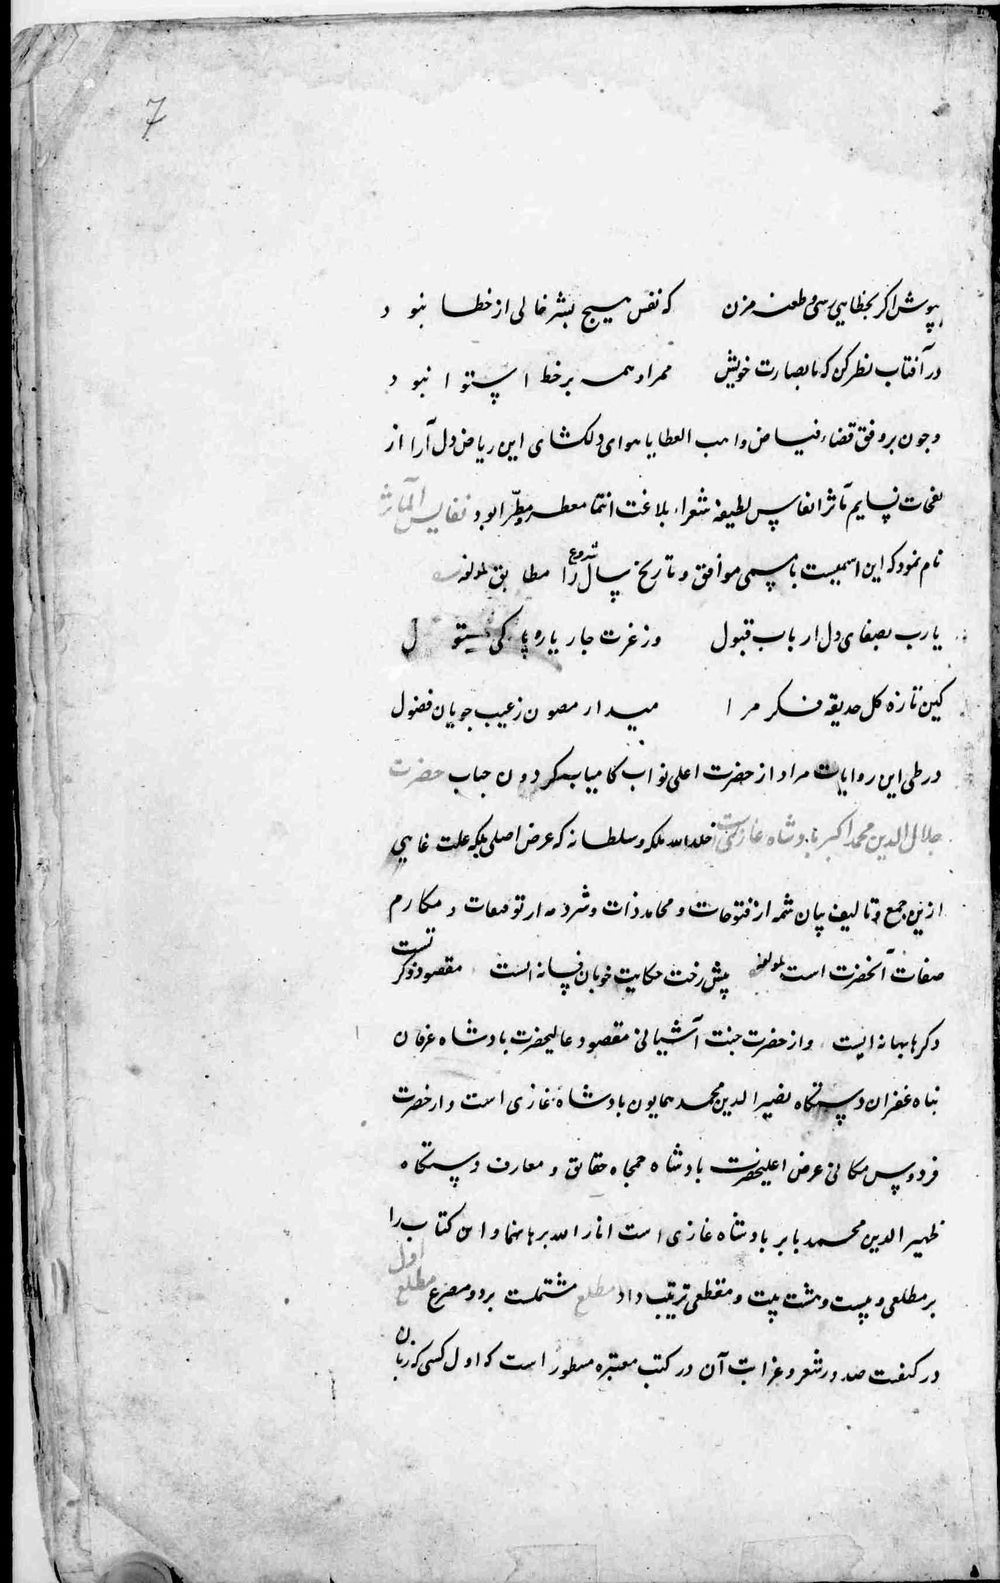 7
بپوش اکر بخطایی رسی و طعنه مزن که نفس هیچ بشر خالی از خطا نبود
در آفتاب نظر کن که با بصارت خویش ممر او همه بر خط استوا نبود
و چون بر وفق قضاء فیاض واهب العطایا هوای دلکشای این ریاض دل آرا از
نفحات نسایم مآثر انفاس لطیفه شعراء بلاغت انتما معطر و مطرّا بود نفایس المآثر
نام نمود که این اسمیست با مسمی موافق و تاریخ سال شروع را مطابق لمولفه
یارب بصفای دل ارباب قبول وز عزت چار یار پاکی
کین تازه کل حدیقه فکر مرا میدار مصون ز عیب جویان فضول
در طی این روایات مراد از حضرت اعلی نواب کامیاب کردون جناب حضرت
جلال الدین محمد اکبر بادشاه غازیست خلد الله ملکه و سلطانه که عرض اصلی بلکه علت غایی
ازین جمع و تالیف بیان شمه از فتوحات و محامد ذات و شرذمه از توصیفات و مکارم
صفات آنحضرت است لمولفه پیش رخت حکایت خوبان فسانه ایست مقصود ذکر تست
دکرها بهانه ایست و از حضرت جنت آشیانی مقصود عالیحضرت بادشاه عرفان
پناه غفران دستگاه نصیر الدین محمد همایون بادشاه غازی است و از حضرت
فردوس مکانی عرض اعلیحضرت بادشاه جمجاه حقایق و معارف دستگاه
ظهیر الدین محمد بابر بادشاه غازی است انار الله برهانهما و این کتاب را
بر مطلعی و بیست و هشت بیت و مقطعی ترتیب داد مطلع مشتملست بر دو مصرع مطلع اول
در کیفیت صدور شعر و غرابت آن در کتب معتبره مسطور است که اول کسی که زبان